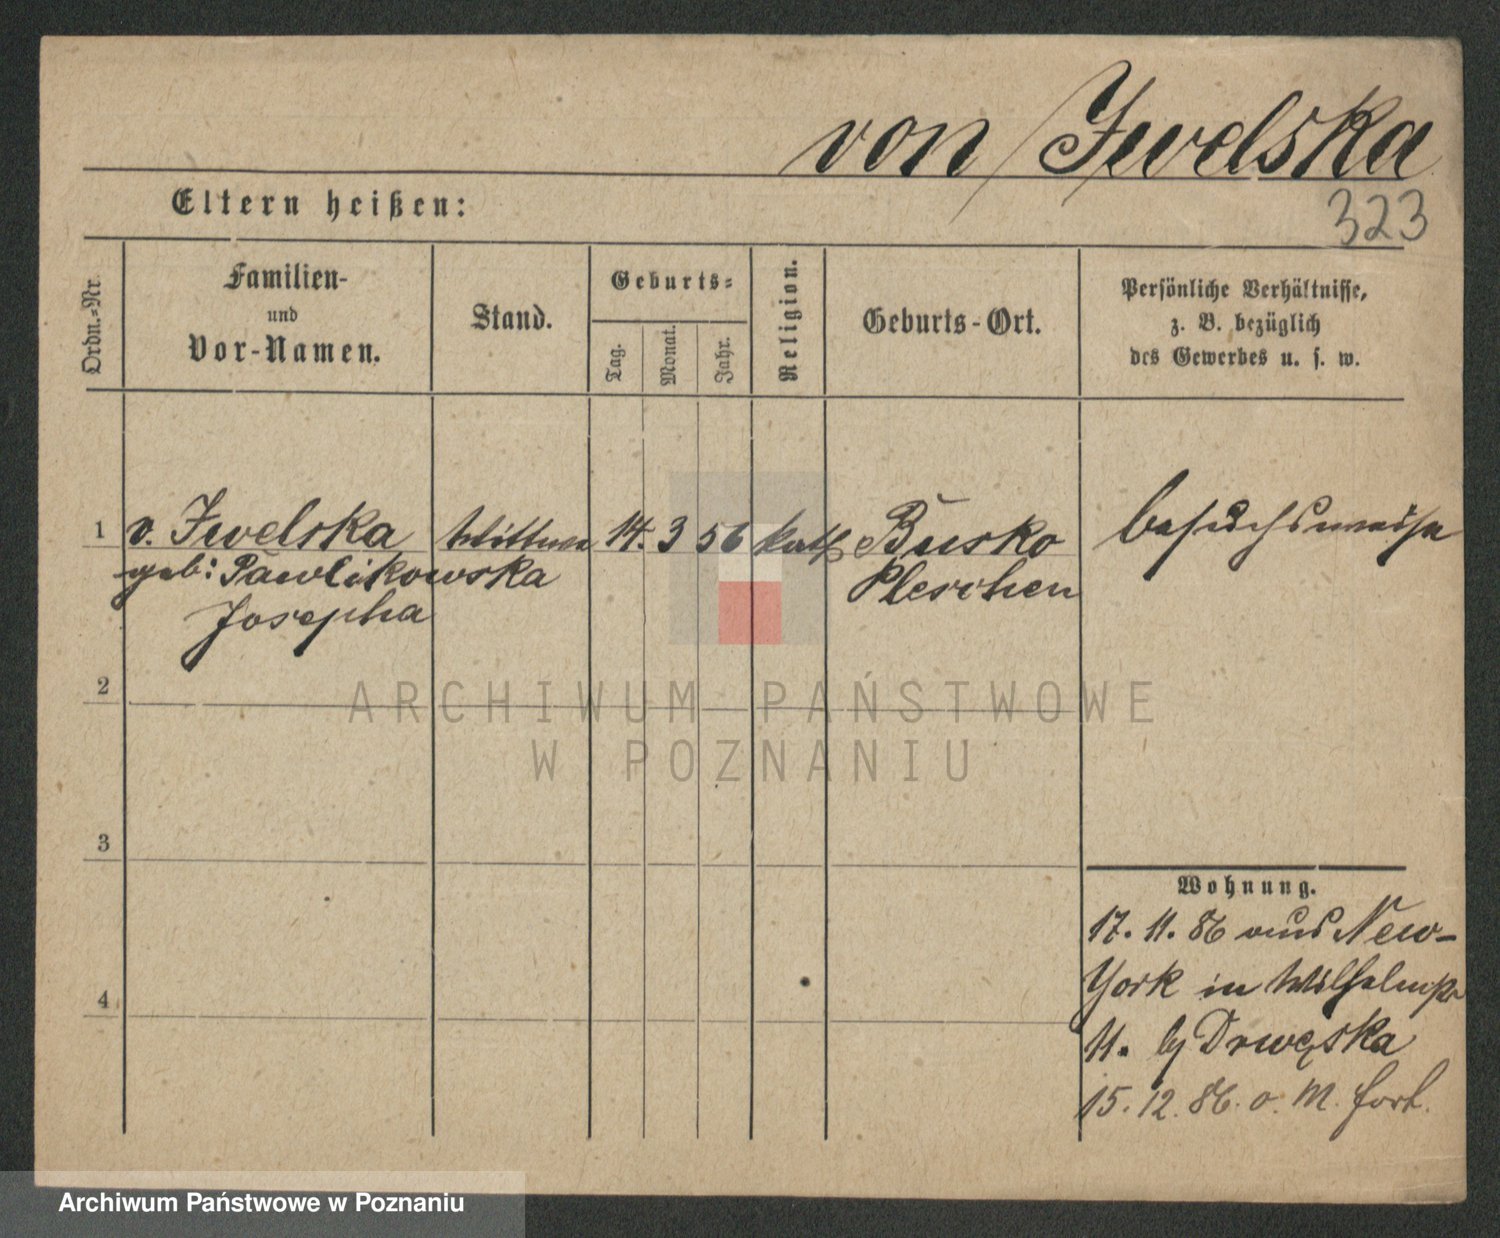 von Iwelska
323
Eltern heißen:
Ordn.-Nr.
Familien-
und
Vor-Namen.
Stand.
Geburts-
Tag.
Monat.
Jahr.
Religion.
Geburts-Ort.
Persönliche Verhältnisse,
z. B. bezüglich
des Gewerbes u. s. w.
1 v. Iwelska Wittwe 14. 3 56 kath Busko besuchsweise
geb: Pawlikowska Pleschen
Josepha
2
ARCHIWUM PAŃSTWOWE
W POZNANIU
3
4
Wohnung.
17. 11. 86 aus New-
York in Wilhelmpl
11. by Drwęska
15. 12. 86. o. M. fort.
Archiwum Państwowe w Poznaniu